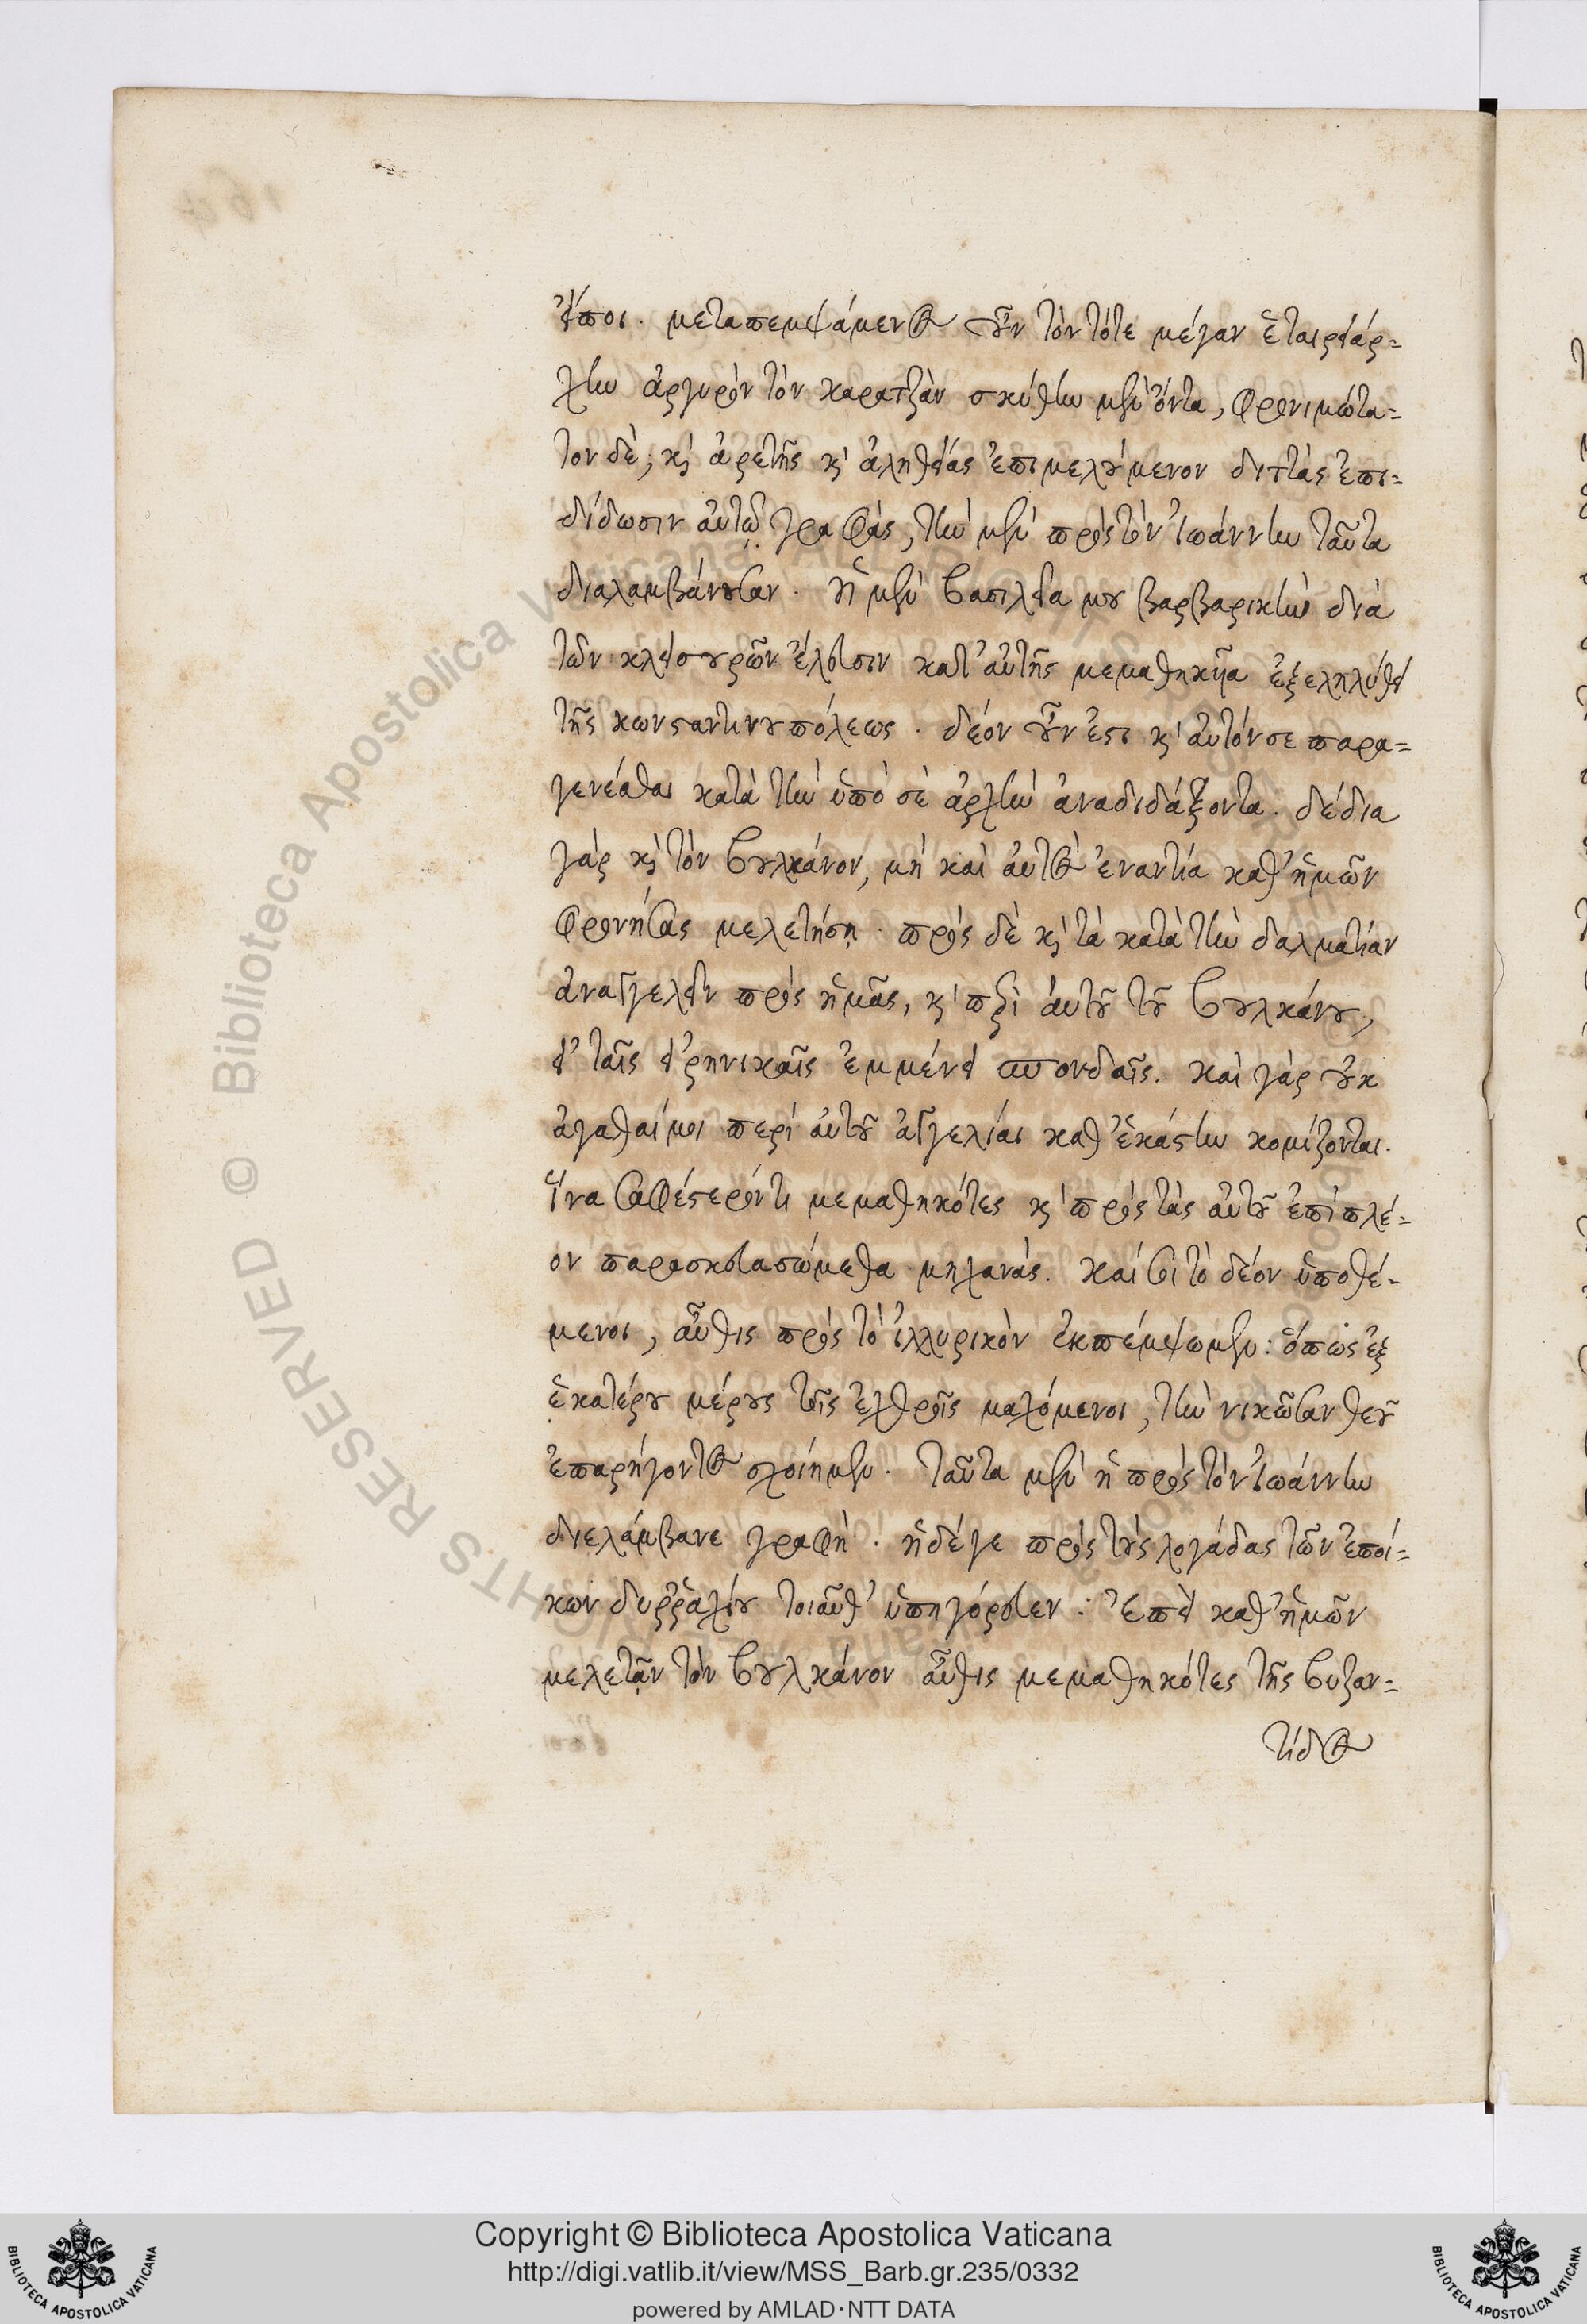 εἴποι. μεταπεμψάμενος οὖν τὸν τότε μέγαν ἑταιρειάρ=
χην ἀργυρὸν τὸν καρατζὰν σκύθην μὲν ὄντα, φρονιμώτα=
τον δὲ, κ̀ ἀρετῆς κ̀ ἀληθείας ἐπιμελούμενον διττὰς ἐπι=
δίδωσιν αὐτῷ γραφάς, τὴν μὲν πρὸς τὸν ἰωάννην ταῦτα
διαλαμβάνουσαν. ἡ μὲν βασιλεία μου βαρβαρικὴν διὰ
τῶν κλεισουρῶν ἔλευσιν κατ' αὐτῆς μεμαθηκῆα ἐξεληλύθει
τῆς κωνσταντινουπόλεως. δέον οὖν ἐστι κ̀ αὐτόν σε παρα=
γενέσθαι κατὰ τὴν ὑπὸ σὲ ἀρχὴν ἀναδιδάξοντα. δέδια
γὰρ κ̀ τὸν βουλκάνον, μὴ καὶ αὐτὸς ἐναντία καθ' ἡμῶν
φρονήσας μελετήσῃ. πρὸς δὲ κ̀ τὰ κατὰ τὴν δαλματίαν
ἀναγγελεῖν πρὸς ἡμᾶς, κ̀ περὶ αὐτοῦ τοῦ βουλκάνου,
εἰ ταῖς εἰρηνικαῖς ἐμμένει σπονδαῖς. καὶ γὰρ οὐκ
ἀγαθαί μοι περὶ αὐτοῦ ἀγγελίαι καθ' ἑκάστην κομίζονται.
ἵνα σαφέστερόν τι μεμαθηκότες κ̀ πρὸς τὰς αὐτοῦ ἐπὶ πλέ=
ον παρασκευασώμεθα μηχανάς. καί σοι τὸ δέον ὑποθέ-
μενοι, αὖθις πρὸς τὸ ἰλλυρικὸν ἐκπέμψωμεν: ὅπως ἐξ
ἑκατέρου μέρους τοῖς ἐχθροῖς μαχόμενοι, τὴν νικῶσαν θεοῦ
ἐπαρήγοντος σχοίημεν. ταῦτα μὲν ἡ πρὸς τὸν ἰωάννην
διελάμβανε γραφή. ἡ δέ γε πρὸς τοὺς λογάδας τῶν ἐποί=
κων δυῤῥαχίου τοιαῦθ' ὑπηγόρευεν: ἐπεὶ καθ' ἡμῶν
μελετᾷν τὸν βουλκάνον αὖθις μεμαθηκότες τῆς βυζαν=
τίδος
Copyright © Biblioteca Apostolica Vaticana
http://digi.vatlib.it/view/MSS_Barb.gr.235/0332
powered by AMLAD·NTT DATA